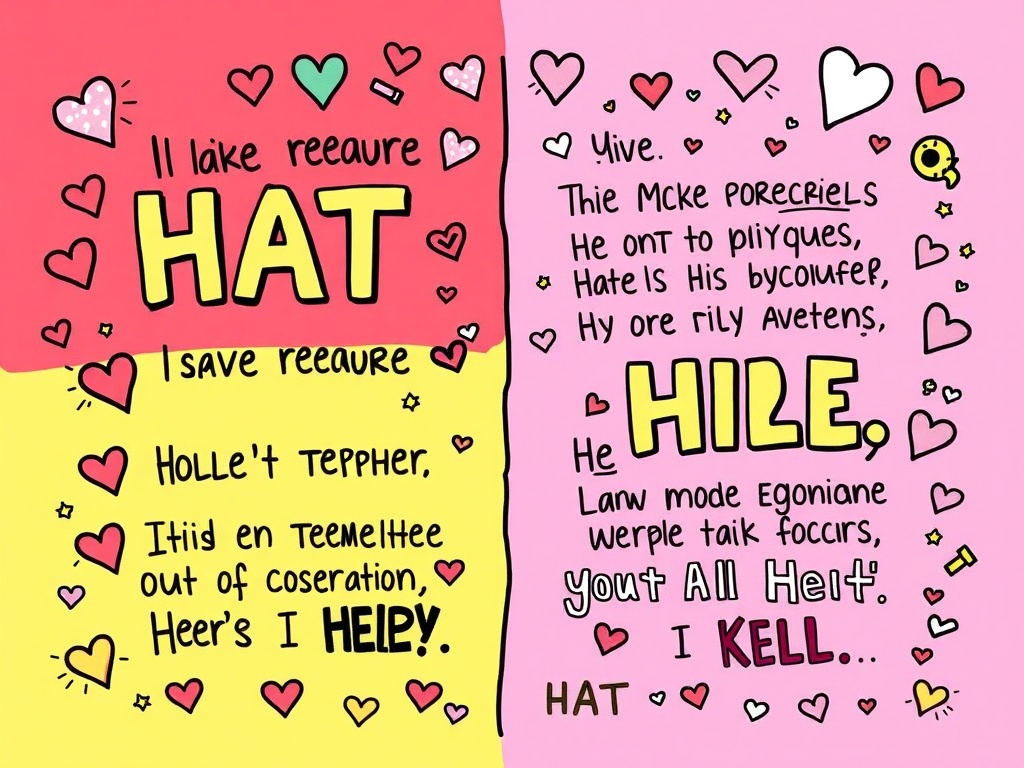 Il laike reeaure
HAT
I save reeaure
Holle't Teppher.
Itiis en Teemelhee
out of coseration,
Heer's I HELPY.
Yive.
Thie Mcke porecriels
He ont to pliyques,
Hate ls His bycoulfer,
Hy ore rily Avetens,
He HILE,
Lanw mode Egoniane
werple taik foccirs,
yout All Heit'.
I KELL...
HAT